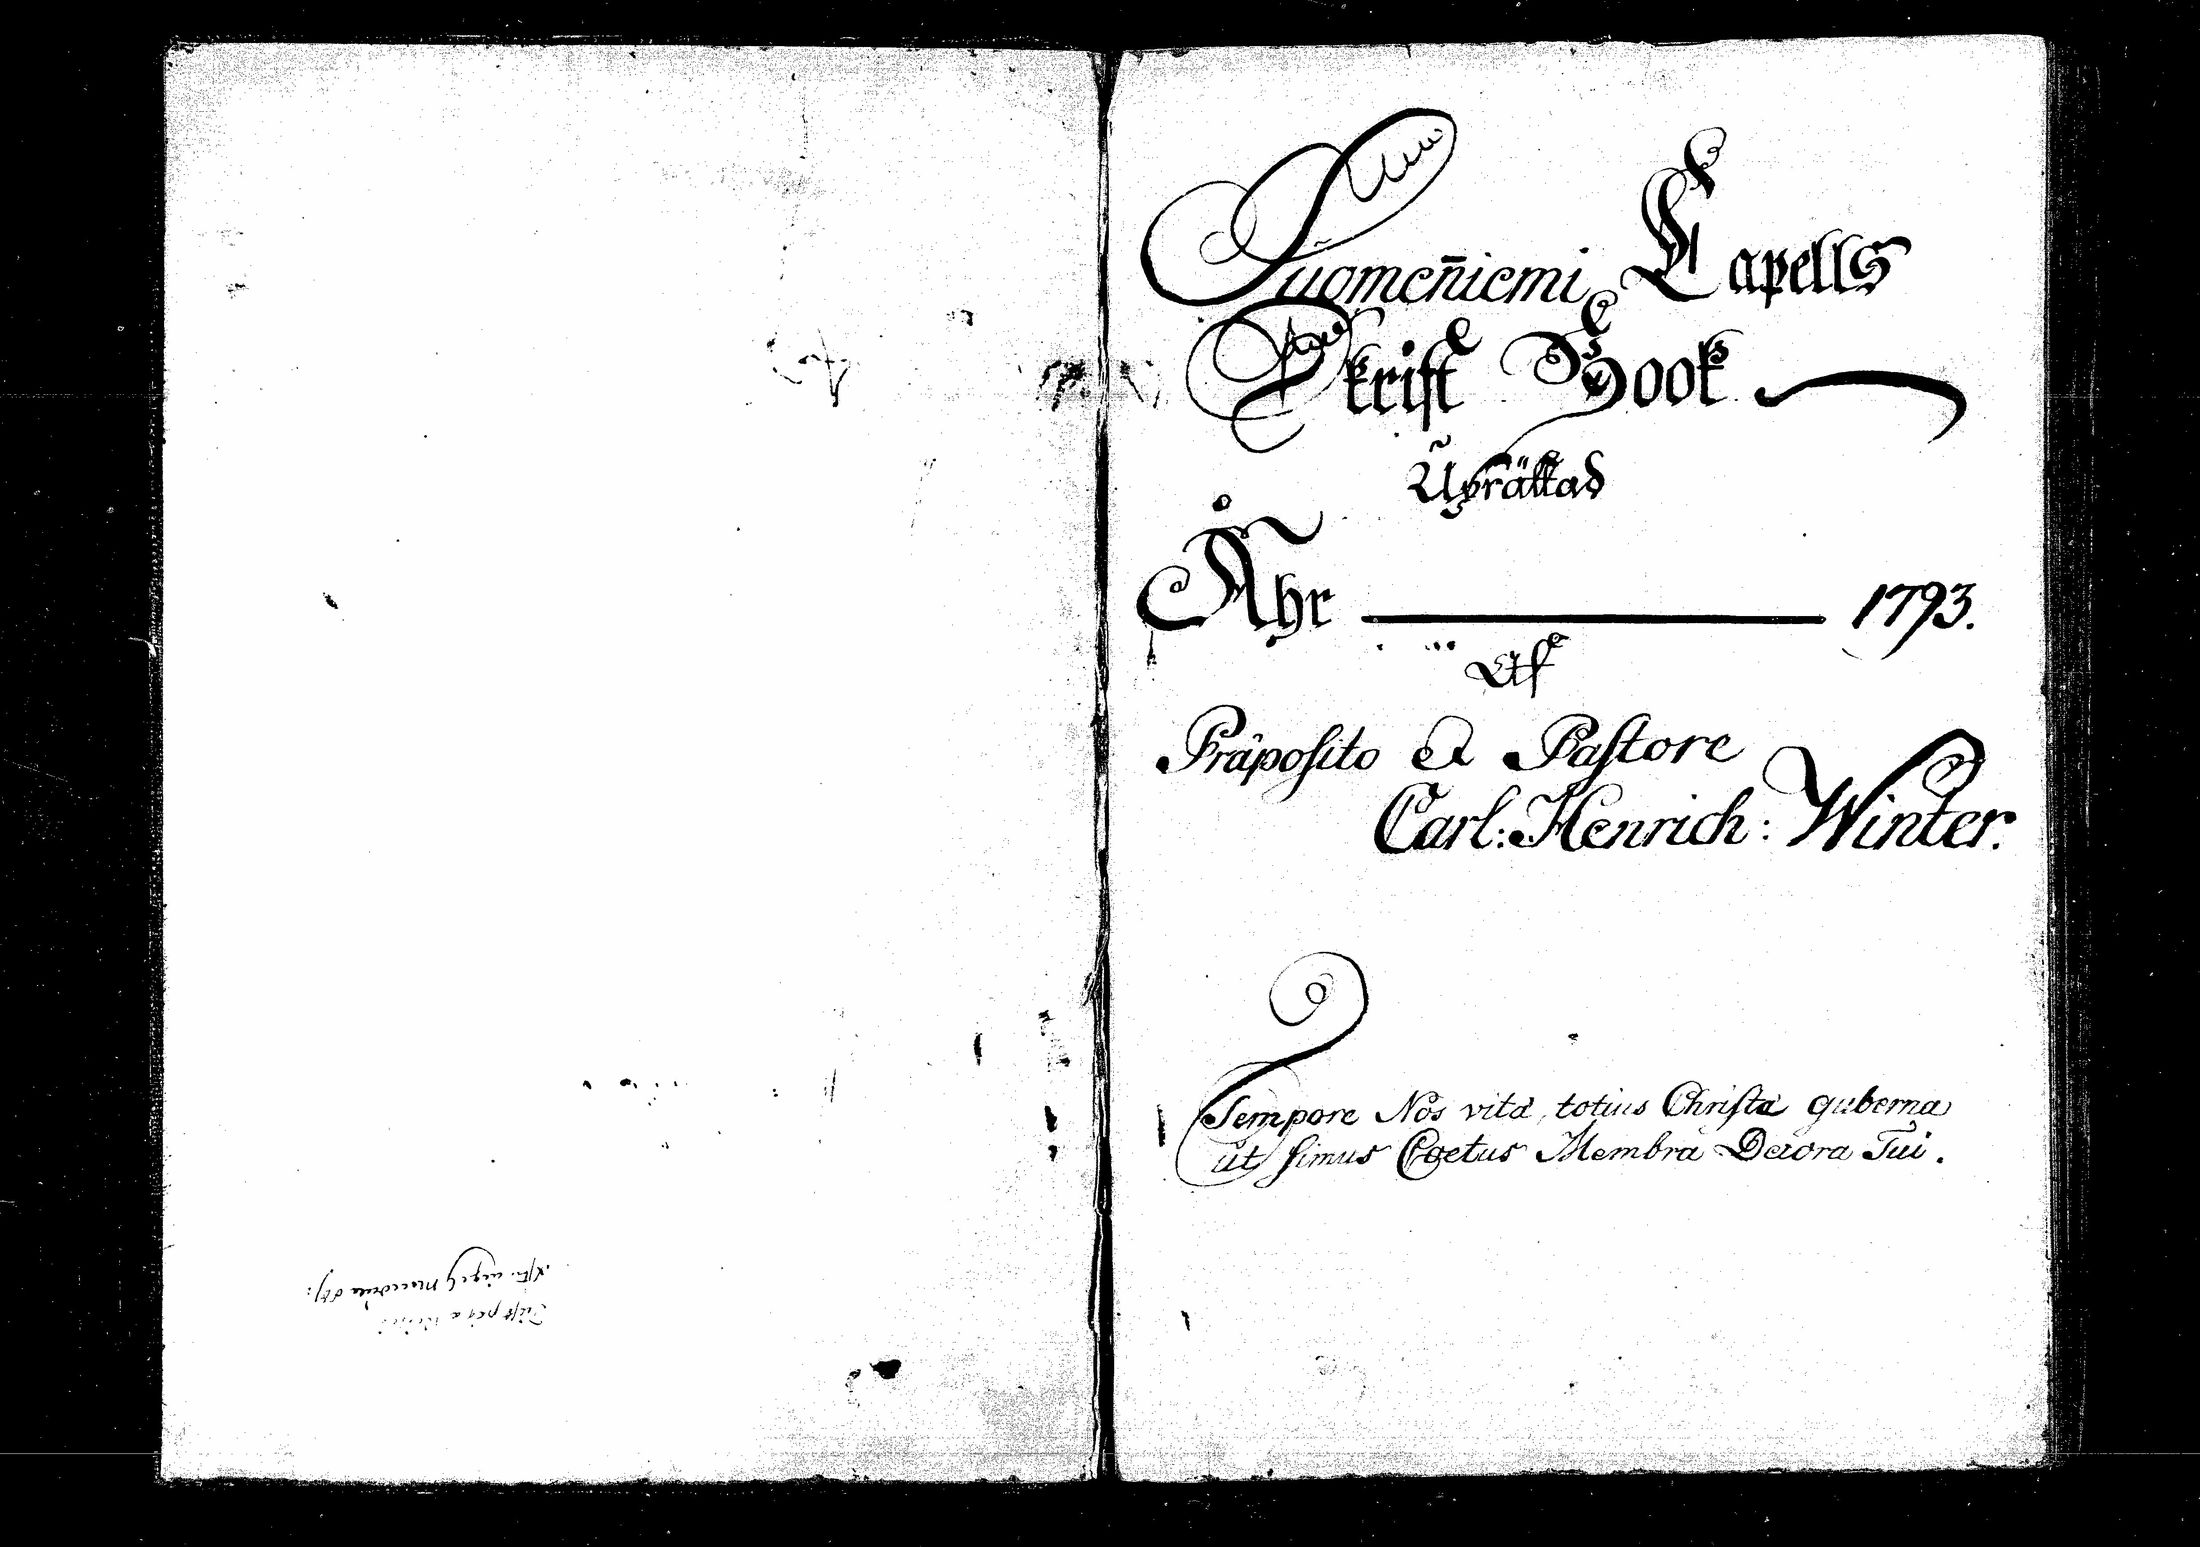 Suomeñiemi Capells
Skrift Book
Uprättad
Åhr 1793.
Af
Præposito et Pastore
Carl: Henrich: Winter.
Tempore Nos vitæ totius Christe guberna
ut simus Coetus Membra Decora Tui.